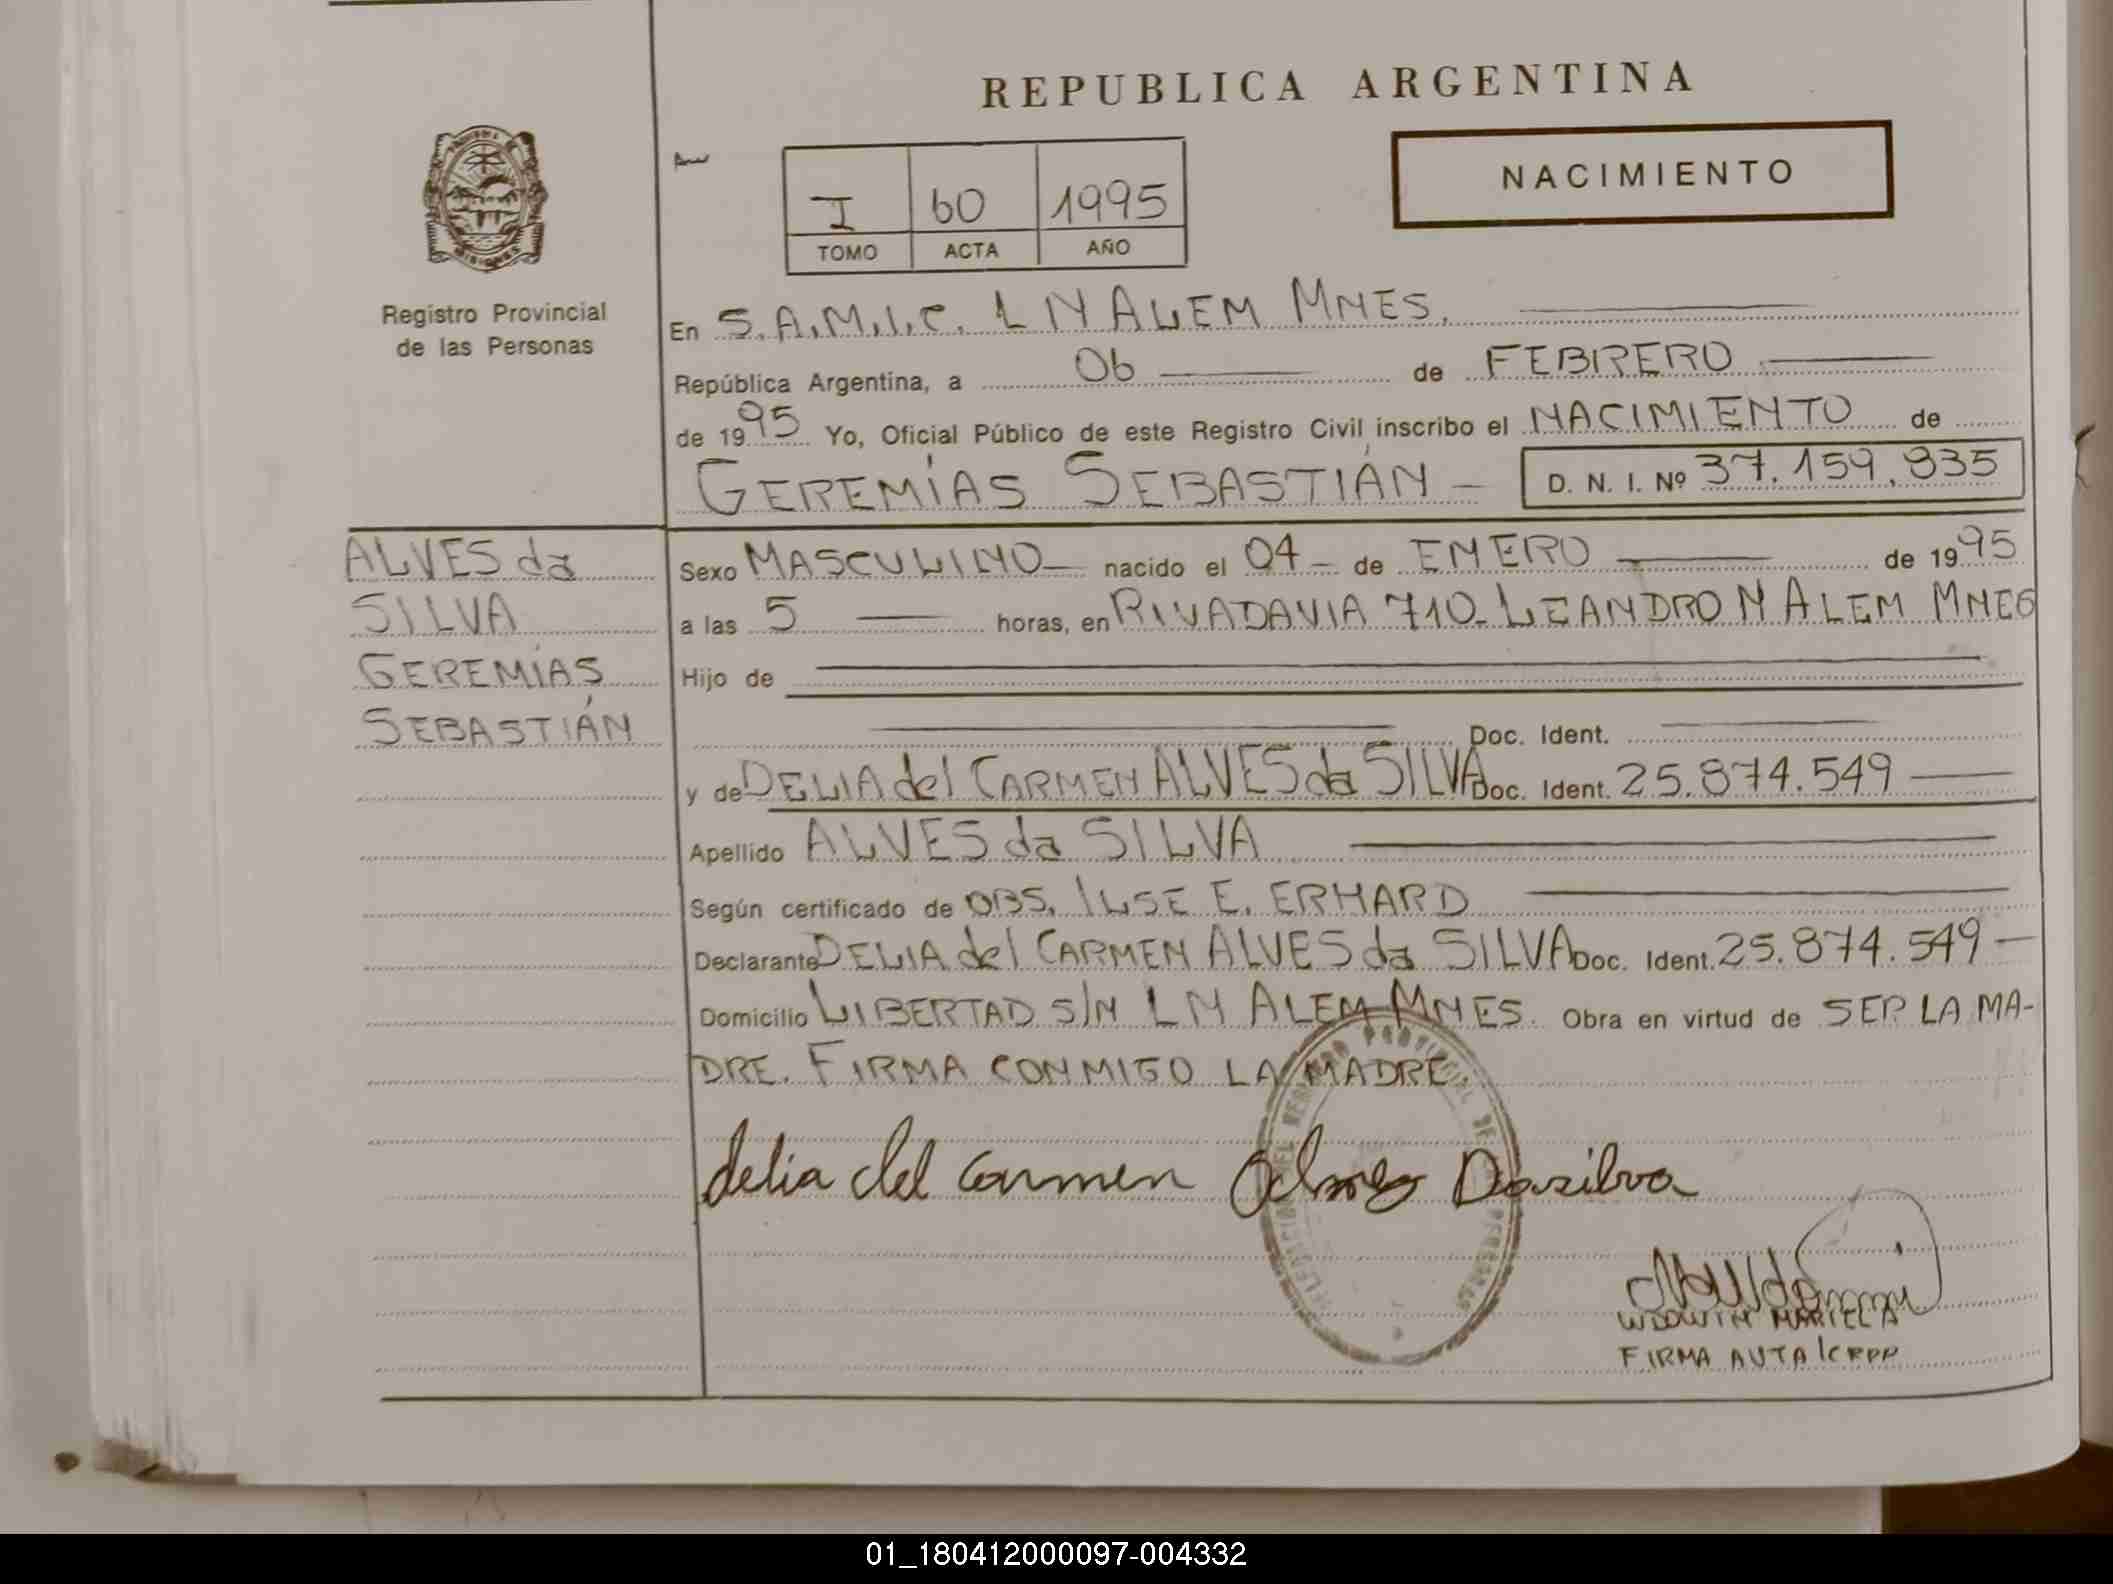 REPUBLICA ARGENTINA
NACIMIENTO
I 60 1995
TOMO ACTA AÑO
Registro Provincial
de las Personas
En S.A.M.I.C. L N ALEM MNES.
República Argentina, a 06 de FEBRERO
de 1995 Yo, Oficial Público de este Registro Civil inscribo el NACIMIENTO de
GEREMÍAS SEBASTIÁN D. N. I. Nº 37.159.835
ALVES da
SILVA
GEREMÍAS
SEBASTIÁN
Sexo MASCULINO nacido el 04 de ENERO de 1995
a las 5 horas, en RIVADAVIA 710 LEANDRO N ALEM MNES
Hijo de
Doc. Ident.
y de DELIA del CARMEN ALVES da SILVA Doc. Ident. 25.874.549
Apellido ALVES da SILVA
Según certificado de OBS. ILSE E. ERHARD
Declarante DELIA del CARMEN ALVES da SILVA Doc. Ident. 25.874.549
Domicilio LIBERTAD S/N L N ALEM MNES. Obra en virtud de SER LA MA-
DRE. FIRMA CONMIGO LA MADRE.
delia del Carmen Alves Dasilva
MARIELA
FIRMA AUTA
01_180412000097-004332